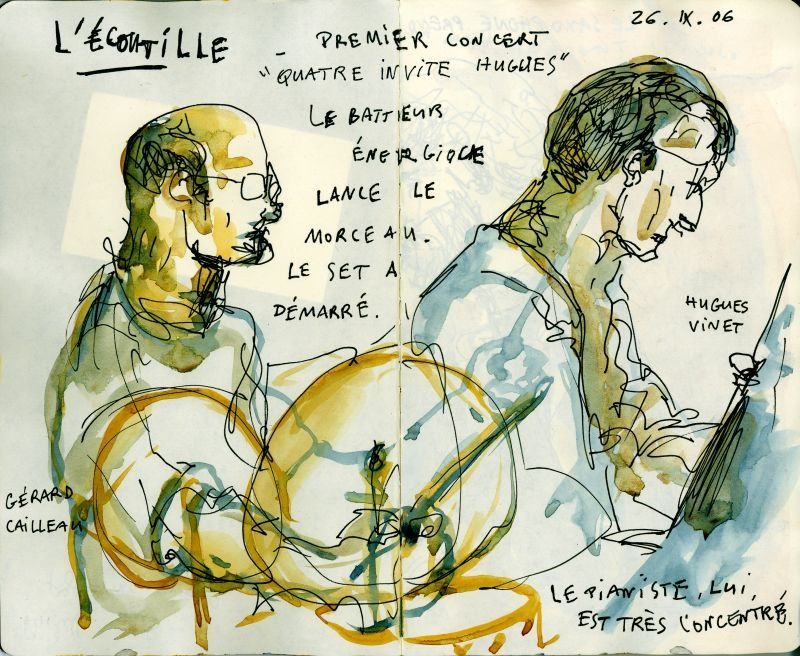 26. IX. 06
L'ÉCOUTILLE
_ PREMIER CONCERT
"QUATRE INVITE HUGUES"
LE BATTEUR
ÉNERGIQUE
LANCE LE
MORCEAU.
LE SET A
DÉMARRÉ.
HUGUES
VINET
GÉRARD
CAILLEAU
LE PIANISTE, LUI,
EST TRÈS CONCENTRÉ.